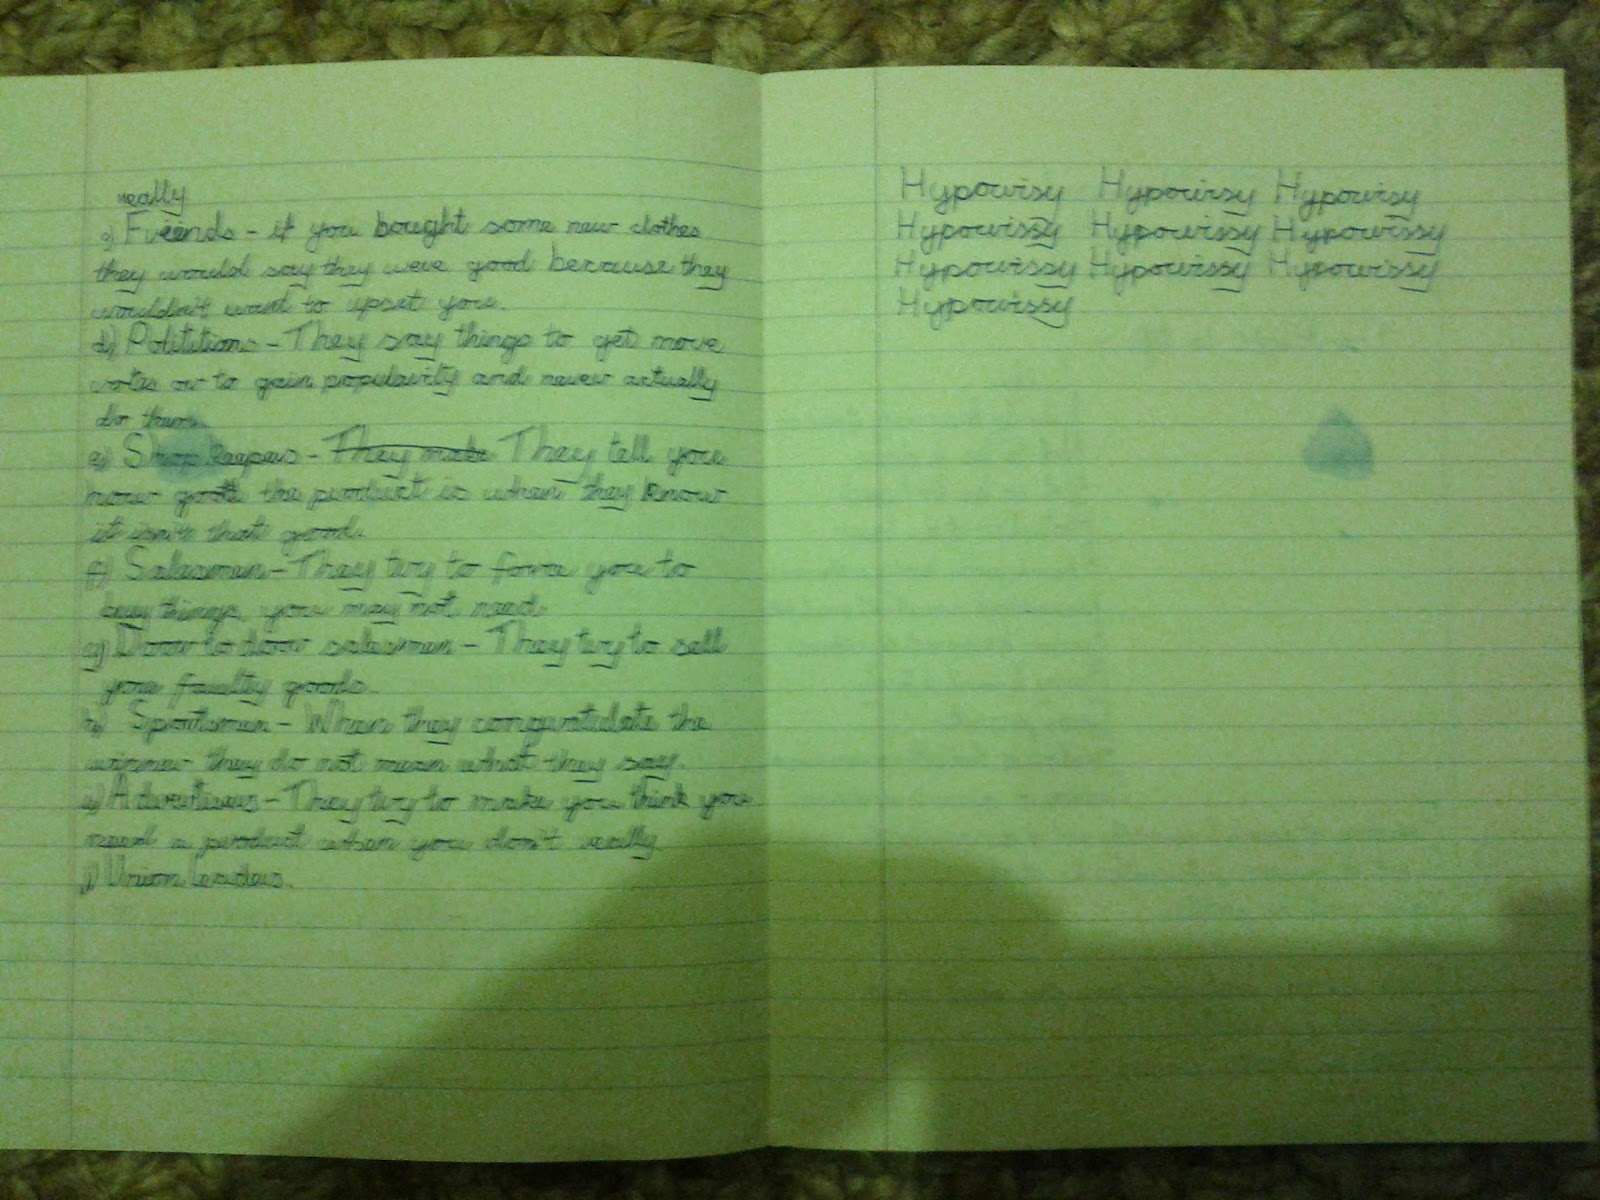 really
c) Friends - if you bought some new clothes
they would say they were good because they
wouldn't want to upset you.
d) Polititions - They say things to get more
votes or to gain popularity and never actually
do them.
e) Shop keepers - They make They tell you
how good the product is when they know
it isn't that good.
f) Salesmen - They try to force you to
buy things you may not need.
g) Door to door salesmen - They try to sell
you faulty goods.
h) Sportsmen - When they congratulate the
winner they do not mean what they say.
i) Advertisers - They try to make you think you
need a product when you don't really.
j) Union leaders.
Hypocrisy Hypocrisy Hypocrisy
Hypocrissy Hypocrissy Hypocrissy
Hypocrissy Hypocrissy Hypocrissy
Hypocrissy